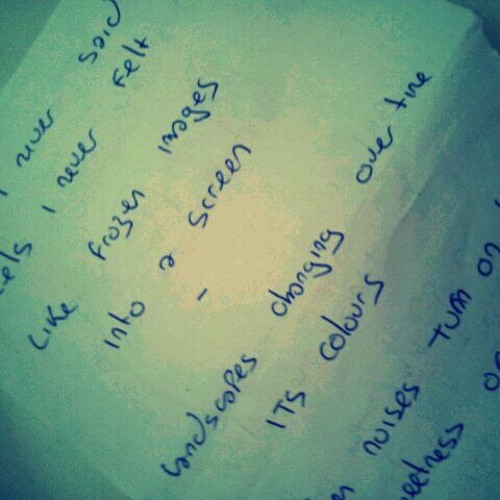 I never said
I never felt
Like frozen images
Into a screen
-
landscapes changing over time
ITS colours
noises turn on